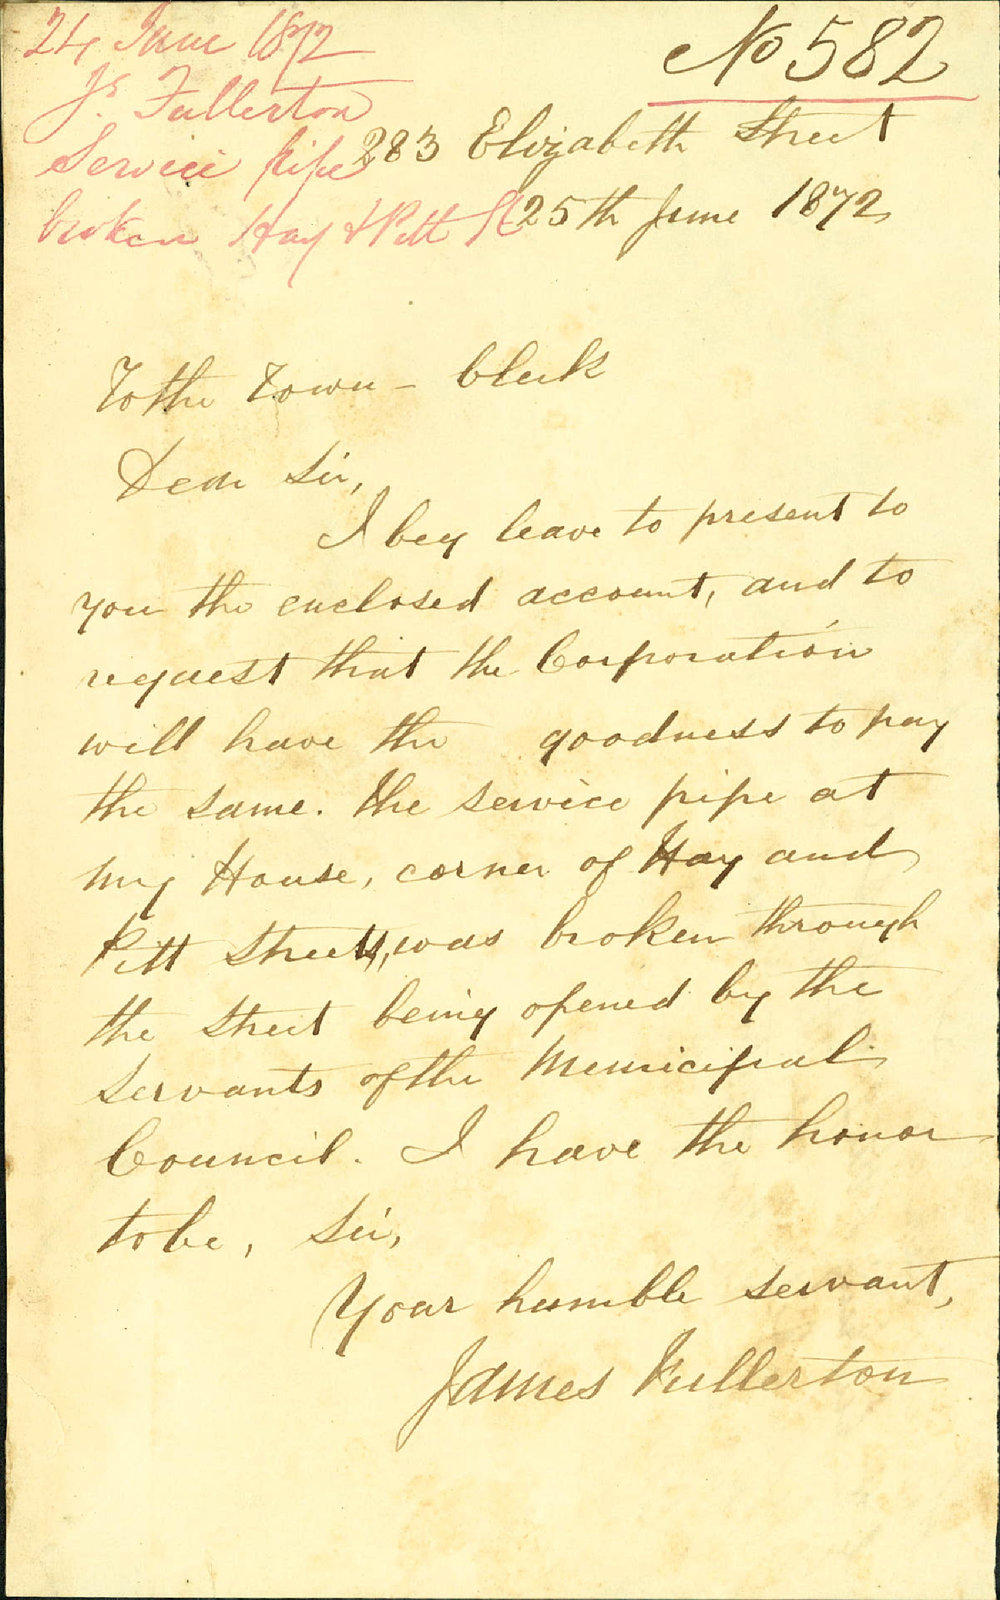 24 June 1872
Js. Fullerton
Service pipe
broken Hay & Pitt St
No 582
283 Elizabeth Street
25th June 1872
To the Town-Clerk
Dear Sir,
I beg leave to present to
you the enclosed account, and to
request that the Corporation
will have the goodness to pay
the same. The service pipe at
my House, corner of Hay and
Pitt Streets, was broken through
the Street being opened by the
Servants of the Municipal
Council. I have the honor
to be, Sir,
Your humble servant,
James Fullerton